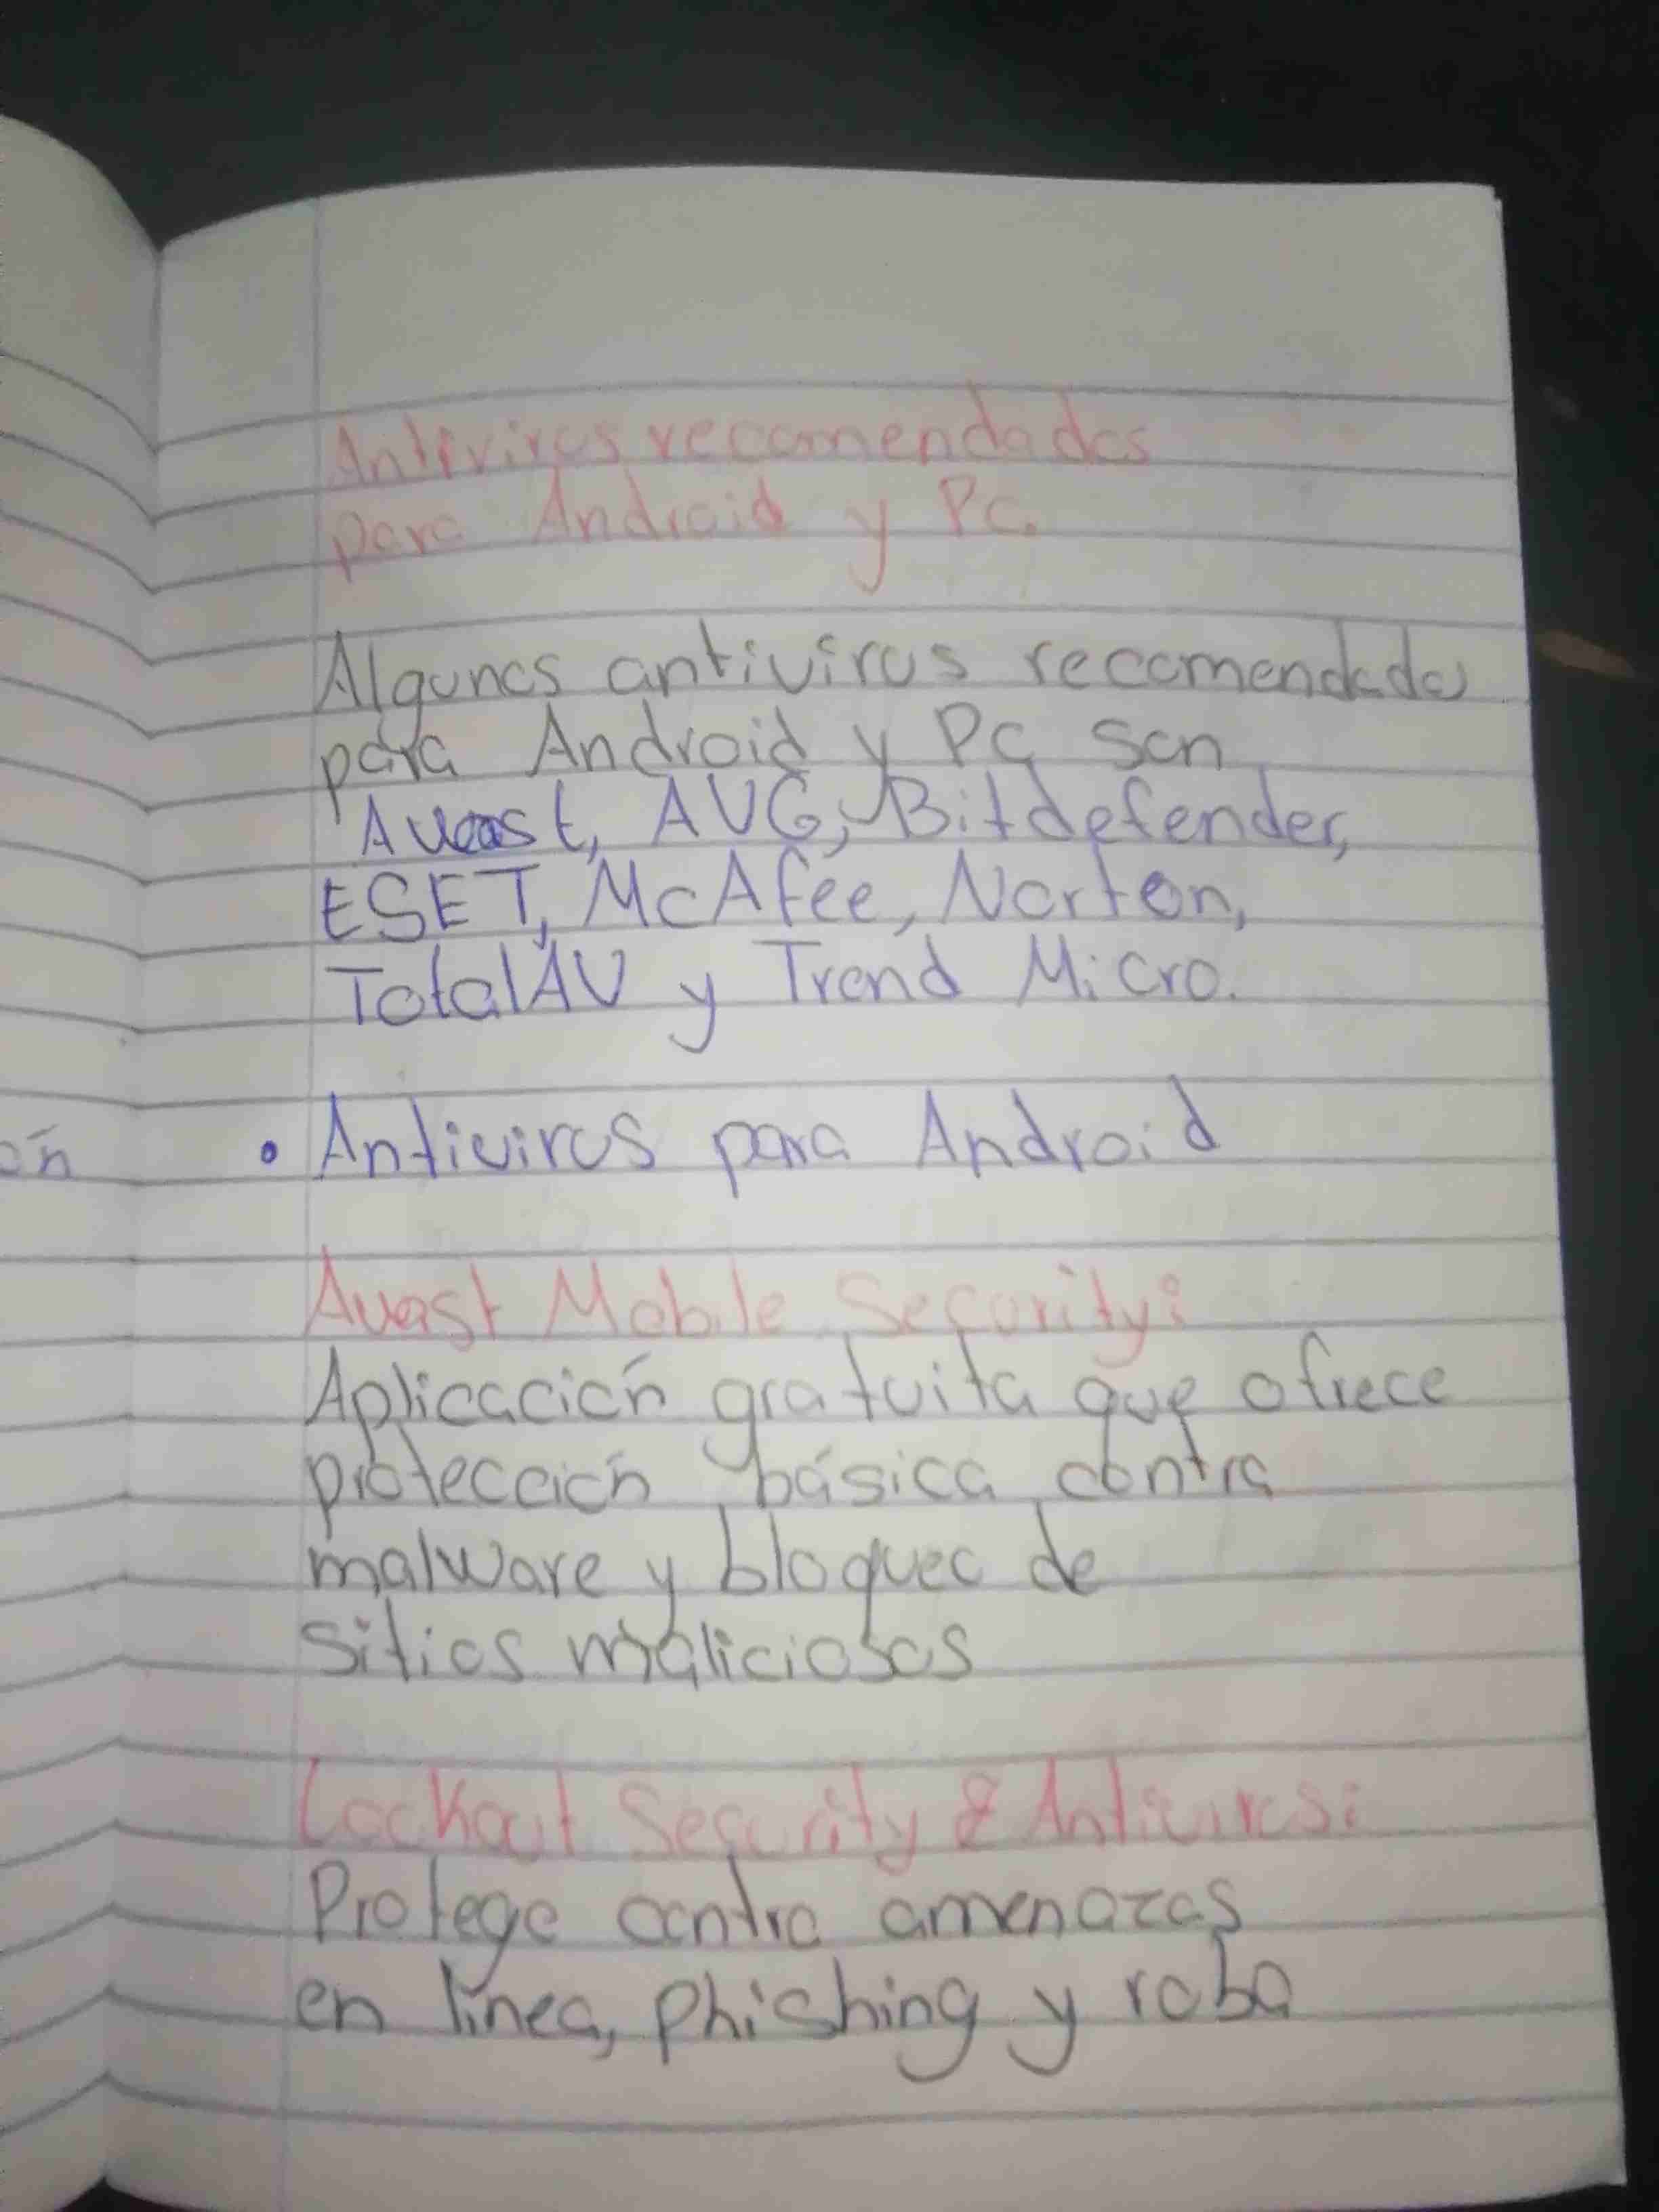 Antivirus recomendados
para Android y Pc.
Algunos antivirus recomendados
para Android y Pc son
Avast, AVG, Bitdefender,
ESET, McAfee, Norton,
TotalAV y Trend Micro.
• Antivirus para Android
Avast Mobile Security:
Aplicación gratuita que ofrece
protección básica contra
malware y bloqueo de
sitios maliciosos
Lockout Security & Antivirus:
Protege contra amenazas
en línea, phishing y roba